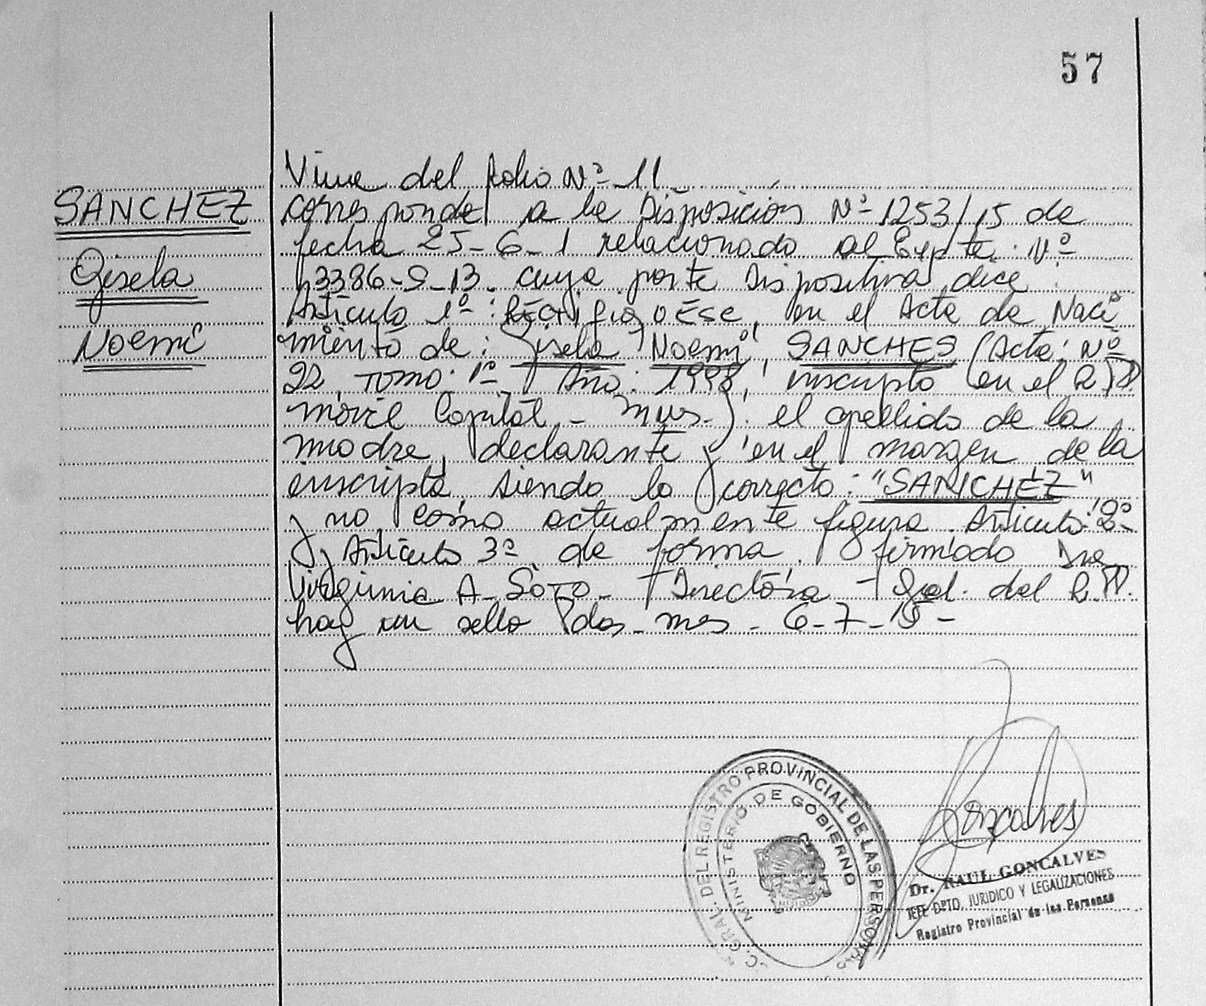 57
SANCHEZ
Gisela
Noemí
Viene del folio Nº 11
corresponde a la Disposición Nº 1253/15 de
fecha 25-6-1 relacionado al Expte. Nº
13386-S-13. cuya parte dispositiva dice:
Artículo 1º: RECTIFIQUESE, en el Acta de Naci
miento de: Gisela Noemí SANCHES (Acta: Nº
22 Tomo: 1º Año: 1998, inscripta en el R.P.P.
móvil Capital - Mns.) el apellido de la
madre, declarante y en el margen de la
inscripta, siendo lo correcto: "SANCHEZ"
y no como actualmente figura. Artículo: 2º
y Artículo 3º de forma. firmado
Virginia A. Soto - Directora Gral. del R.P.P.
hay un sello Pdas. mes - 6-7-15 -
GRAL. DEL REGISTRO PROVINCIAL DE LAS PERSONAS
MINISTERIO DE GOBIERNO
Gonçalves
Dr. RAUL GONCALVES
JEFE DPTO. JURIDICO Y LEGALIZACIONES
Registro Provincial de las Personas